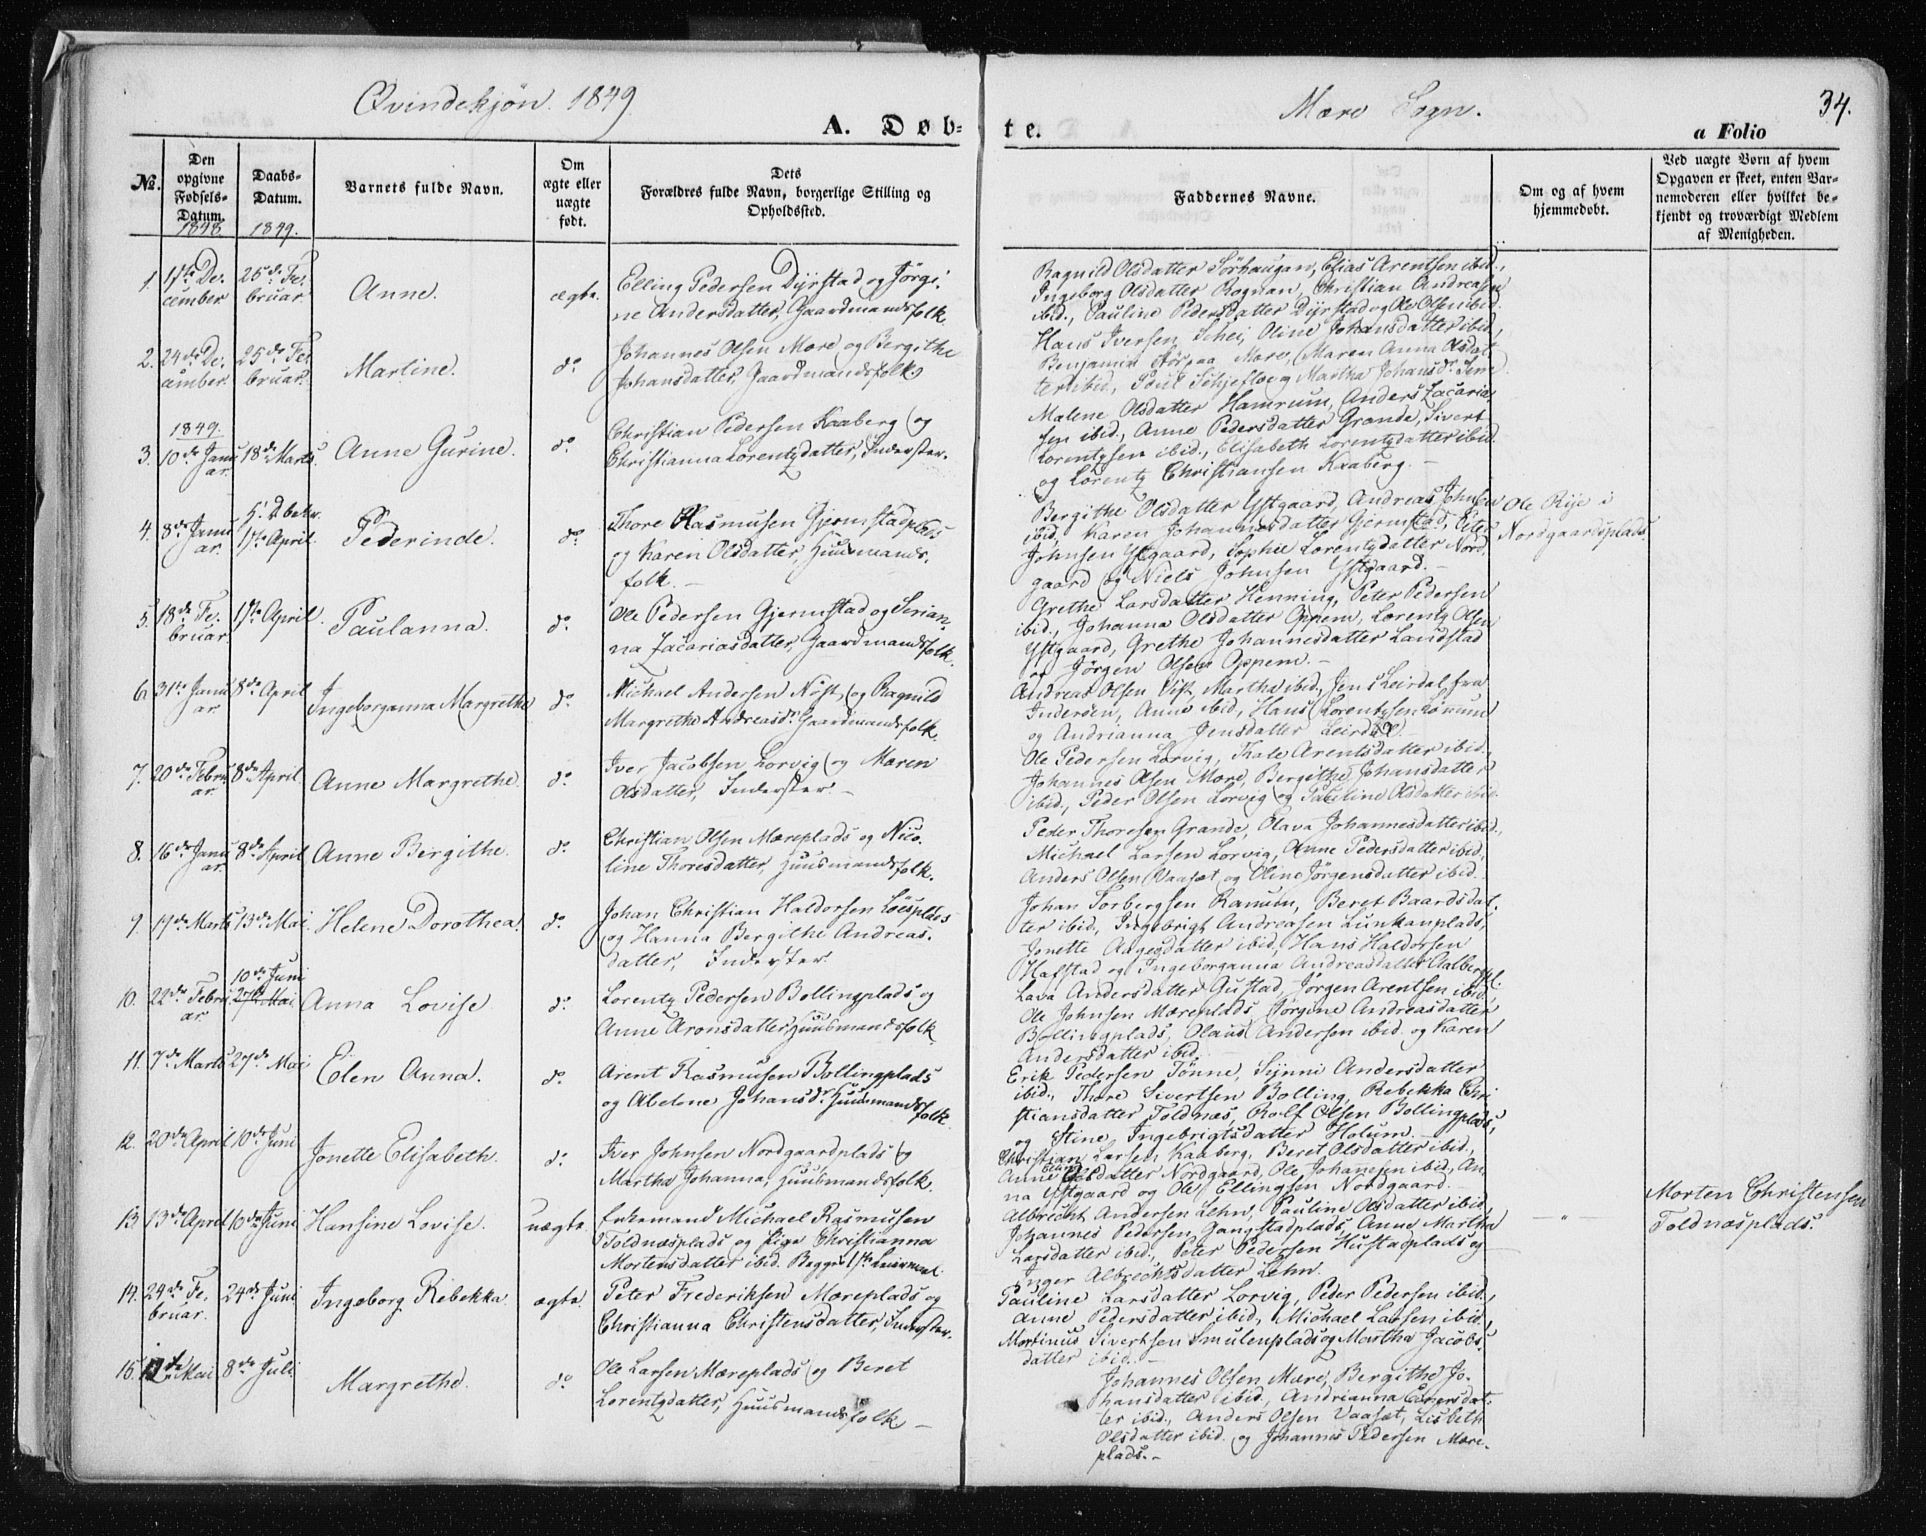 Qvindekjøn. 1849
Mære Sogn.
34.
A. Døb-
te.
a Folio
No.
Den opgivne Fødsels-Datum.
Daabs-Datum.
Barnets fulde Navn.
Om ægte eller uægte født.
Dets Forældres fulde Navn, borgerlige Stilling og Opholdssted.
Faddernes Navne.
Om og af hvem hjemmedøbt.
Ved uægte Børn af hvem Opgaven er skeet, enten Barnemoderen eller hvilket bekjendt og troværdigt Medlem af Menigheden.
1848. 1849.
1. 17de December 25de Februar Anne. ægte.
Elling Pedersen Dyrstad og Jørgi-
ne Andersdatter, Gaardmandsfolk.
Ragnild Olsdatter Sørhaugan, Elias Arentsen ibid.,
Ingeborg Olsdatter Rognan, Christian Andreasen
ibid., Pauline Pedersdatter Dyrstad og Ole Olsen ibid.
2. 24de December. 25de Februar. Martine. do
Johannes Olsen Mære og Bergithe
Johansdatter, Gaardmandsfolk
Hans Iversen Schei, Oline Johansdatter ibid.,
Benjamin Mære, Maren Anna Olsdat-
ter ibid., og Martha Johansdr.
1849.
3. 10de Januar. 18de Marts. Anne Gurine. do
Christian Pedersen Kaaberg og
Christianna Lorentzdatter, Inderster.
Malene Olsdatter Hamrum, Anders Zacaria-
sen ibid., Anne Pedersdatter Grande, Sivert
Lorentzsen ibid., Elisabeth Lorentzdatter ibid.
og Lorentz Christiansen Kaaberg.
4. 8de Januar. 1ste April. Pederinde. do
Thore Rasmusen Gjermstadplads
og Karen Olsdatter, Huusmands-
folk. —
Bergithe Olsdatter Ystgaard, Andreas Johnsen
ibid., Karen Johannesdatter Gjermstad, Peter
Johnsen Ystgaard, Sophie Lorentzdatter Nord-
gaard og Niels Johnsen Ystgaard. —
Ole Rise i
Nordgaardsplads.
5. 18de Februar. 1ste April. Paulanna. do
Ole Pedersen Gjermstad og Serian-
na Zacariasdatter, Gaardmandsfolk.
Grethe Larsdatter Henning, Peter Pedersen
ibid., Johanna Olsdatter Oppem, Lorentz Olsen
Ystgaard, Grethe Johannesdatter Landstad
og Jørgen Olsen Oppem. —
6. 31te Januar. 8de April Ingeborganna Margrethe do
Michael Andersen Nøst, og Ragnild
Margrethe Andreasdr. Gaardmandsfolk.
Andreas Olsen Vist, Martha ibid., Jens Leirdal fra
Inderøen, Anne ibid., Hans Lorentzsen
og Andrianna Jensdatter Leirdal.
7. 20de Februar. 8de April Anne Margrethe. do
Iver Jacobsen Lorvig og Maren
Olsdatter, Inderster. —
Ole Pedersen Lorvig, Thale Arentsdatter ibid.,
Johannes Olsen Mære, Bergithe Johansdatter
ibid., Peder Olsen Lorvig og Pauline Olsdatter ibid.
8. 16de Januar. 8de April Anne Bergithe. do
Christian Olsen Mæreplads og Nico-
line Thoresdatter, Huusmandsfolk.
Peder Thoresen Grande, Olava Johannesdatter ibid.,
Michael Larsen Lorvig, Anne Pedersdatter ibid.,
Anders Olsen Vaasæt og Oline Jørgensdatter ibid.
9. 17de Marts 13de Mai. Helene Dorothea. do
Johan Christian Haldorsen
og Hanna Bergithe Andreas-
datter, Inderster.
Johan Torbergsen Ranum, Beret Baardsdat-
ter ibid., Ingebrigt Andreasen Lunkanplads,
Jonette Aagesdatter ibid., Hans Haldorsen
Halstad og Ingeborganna Andreasdatter Aalbergpl.
10. 22de Februar. 10de Juni 27de Mai Anna Lovise. do
Lorentz Pedersen Bollingplads og
Anne Aronsdatter, Huusmandsfolk
Lava Andersdatter Gustad, Jørgen Arentsen ibid.,
Ole Johnsen Mæreplads, Jørgine Andreasdatter
Bollingplads, Olaus Andersen ibid. og Karen
Andersdatter ibid.
11. 7de Marts 27de Mai Elen Anna. do
Arent Rasmusen Bollingplads
og Abelone Johansdr. Huusmandsfolk
Erik Pedersen Tønne, Synni Andersdatter
ibid., Thore Sivertsen Bolling, Rebekka Chri-
stiansdatter Toldnæs, Rolf Olsen Bollingplads,
og Stine Ingebrigtsdatter Holum. —
12. 20de April 10de Juni Jonette Elisabeth. do
Iver Johnsen Nordgaardplads og
Martha Johanna, Huusmandsfolk.
Christian Larsen Kaaberg, Beret Olsdatter ibid.,
Anne Olsdatter Nordgaard, Ole Johansen ibid., An-
na Ystgaard og Ole Ellingsen Nordgaard. —
13. 13de April 10de Juni Hansine Lovise. uægte.
Enkemand Michael Rasmusen
Toldnæsplads og Pige Christianna
Mortensdatter ibid. Begges 1ste Leiermaal.
Albrecht Andersen Lehn, Pauline Olsdatter ibid.,
Johannes Pedersen Gangstadplads, Anne Martha
Larsdatter ibid., Peter Pedersen Hustadplads og
Inger Albrechtsdatter Lehn.
— " —
Morten Christensen
Toldnæsplads.
14. 24de Februar. 24de Juni Ingeborg Rebekka. ægte.
Peter Frederiksen Mæreplads og
Christianna Christensdatter, Inderster.
Pauline Larsdatter Lorvig, Peder Pedersen ibid.,
Anne Pedersdatter ibid., Michael Larsen ibid.,
Mortinus Sivertsen Smulenplads og Martha Jacobs-
datter ibid. —
15. Mai 8de Juli. Margrethe. do
Ole Larsen Mæreplads og Beret
Lorentzdatter, Huusmandsfolk —
Johannes Olsen Mære, Bergithe Jo-
hansdatter ibid., Andrianna Einersdat-
ter ibid., Anders Olsen Vaasæt, Lisbeth
Olsdatter ibid. og Johannes Pedersen Mære-
plads. —